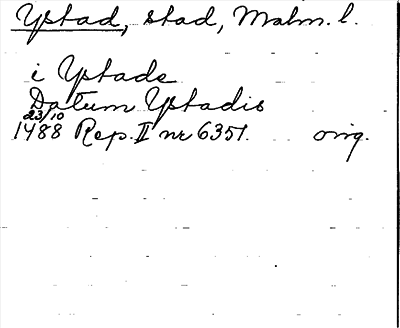 Ystad, stad, Malm. l.
i Ystade
Datum Ystadis
23/10
1488 Rep. II nr 6351. orig.